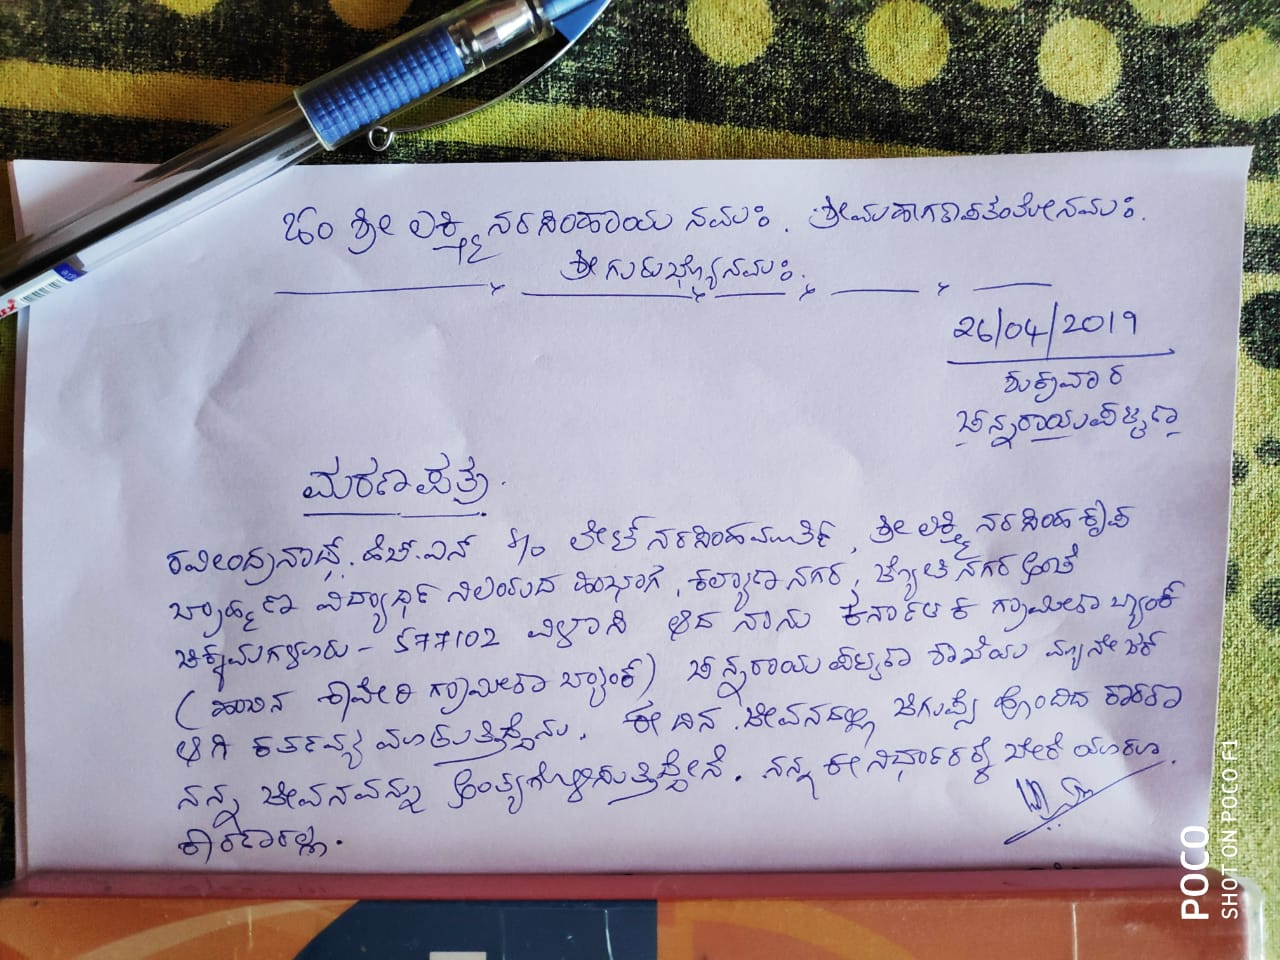 ಓಂ ಶ್ರೀ ಲಕ್ಷ್ಮೀ ನರಸಿಂಹಾಯ ನಮಃ. ಶ್ರೀಮಹಾಗಣಪತಯೇನಮಃ.
ಶ್ರೀ ಗುರುಭ್ಯೋನಮಃ.
26/04/2019
ಶುಕ್ರವಾರ
ಚನ್ನರಾಯಪಟ್ಟಣ
ಮರಣ ಪತ್ರ.
ರವೀಂದ್ರನಾಥ್. ಹೆಚ್.ಎನ್ S/o ಲೇಟ್ ನರಸಿಂಹಮೂರ್ತಿ, ಶ್ರೀ ಲಕ್ಷ್ಮಿ ನರಸಿಂಹ ಕೃಪ
ಬ್ರಾಹ್ಮಣ ವಿದ್ಯಾರ್ಥಿ ನಿಲಯದ ಹಿಂಭಾಗ, ಕಲ್ಯಾಣ ನಗರ, ಜ್ಯೋತಿ ನಗರ ಅಂಚೆ
ಚಿಕ್ಕಮಗಳೂರು - 577102 ವಿಳಾಸಿ ಆದ ನಾನು ಕರ್ನಾಟಕ ಗ್ರಾಮೀಣ ಬ್ಯಾಂಕ್
(ಹಿಂದಿನ ಕಾವೇರಿ ಗ್ರಾಮೀಣ ಬ್ಯಾಂಕ್) ಚನ್ನರಾಯಪಟ್ಟಣ ಶಾಖೆಯ ಮ್ಯಾನೇಜರ್
ಆಗಿ ಕರ್ತವ್ಯ ಮಾಡುತ್ತಿದ್ದೆನು. ಈ ದಿನ ಜೀವನದಲ್ಲಿ ಜಿಗುಪ್ಸೆ ಹೊಂದಿದ ಕಾರಣ
ನನ್ನ ಜೀವನವನ್ನು ಅಂತ್ಯಗೊಳ್ಳಿಸುತ್ತಿದ್ದೇನೆ. ನನ್ನ ಈ ನಿರ್ಧಾರಕ್ಕೆ ಬೇರೆ ಯಾರೂ
ಕಾರಣರಲ್ಲ.
POCO
SHOT ON POCO F1